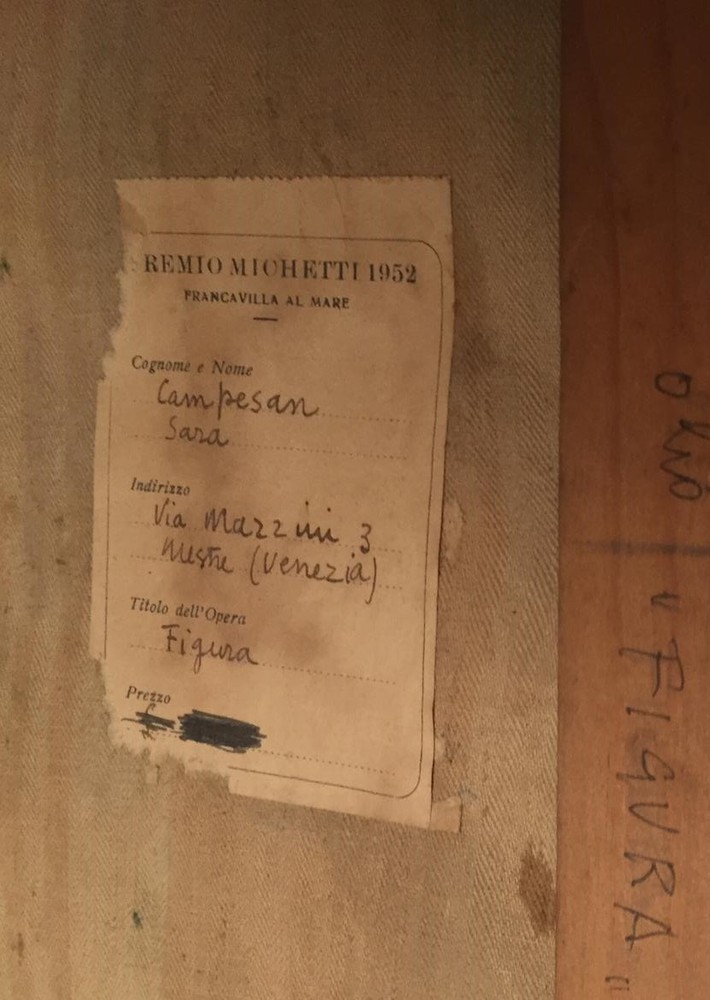 REMIO MICHETTI 1952
FRANCAVILLA AL MARE
Cognome e Nome
Campesan
Sara
Indirizzo
Via Mazzini 3
Mestre (Venezia)
Titolo dell'Opera
Figura
Prezzo
£
olio
"FIGURA"